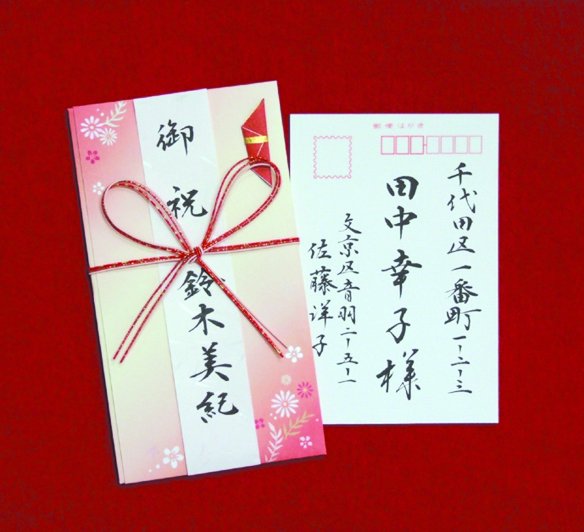 御祝
鈴木美紀
郵便はがき
千代田区一番町一-二-三
田中幸子様
文京区音羽二-五-一
佐藤洋子